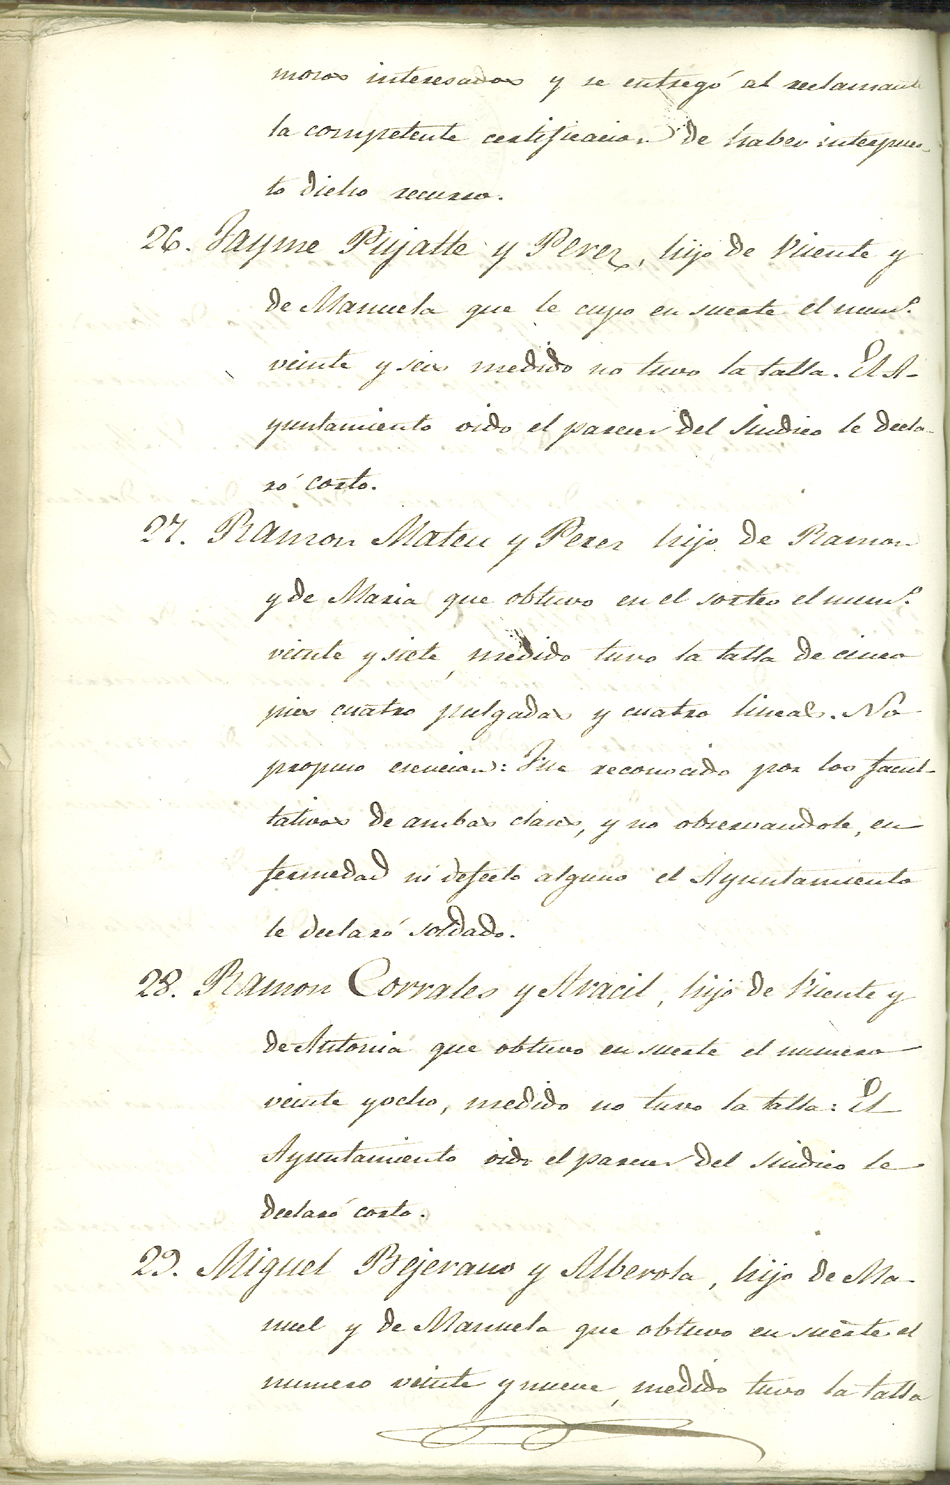 mozos interesados y se entregó al reclamante
la competente certificacion de haber interpues-
to dicho recurso.
26. Jayme Pujalte y Perez, hijo de Vicente y
de Manuela que le cupo en suerte el num.º
veinte y seis medido no tuvo la talla. El A-
yuntamiento oido el parecer del Sindico le decla-
ró corto.
27. Ramon Mateu y Perez hijo de Ramon
y de Maria que obtuvo en el sorteo el num.º
veinte y siete, medido tuvo la talla de cinco
pies cuatro pulgadas y cuatro lineas. No
propuso esencion: Fue reconocido por los facul-
tativos de ambas clases, y no observandole, en
fermedad ni defecto alguno el Ayuntamiento
le declaró soldado.
28. Ramon Corrales y Aracil, hijo de Vicente y
de Antonia que obtuvo en suerte el numero
veinte y ocho, medido no tuvo la talla: El
Ayuntamiento oido el parecer del sindico le
declaró corto.
29. Miguel Bejerano y Alberola, hijo de Ma-
nuel y de Manuela que obtuvo en suerte el
numero veinte y nueve, medido tuvo la talla